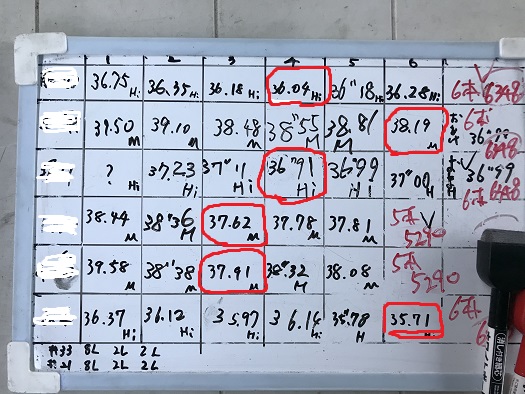 1 2 3 4 5 6
36.75 Hi 36.35 Hi 36.18 Hi 36.04 Hi 36"18 Hi 36.28 Hi 6本 6348
39.50 M 39.10 M 38.48 M 38"55 M 38.81 M 38.19 M 6本 6348
? Hi 37.23 Hi 37"11 Hi 36"91 Hi 36"99 Hi 37"09 H 36"99 6本 6348
38.44 M 38"36 M 37.62 M 37.78 M 37.81 M 5本 5290
39.58 M 38"38 M 37.91 M 38"32 M 38.08 M 5本 5290
36.37 Hi 36.12 Hi 35.97 Hi 36.14 Hi 35"78 H 35.71 Hi 6本
#33 8L 2L 2L
#21 8L 2L 2L